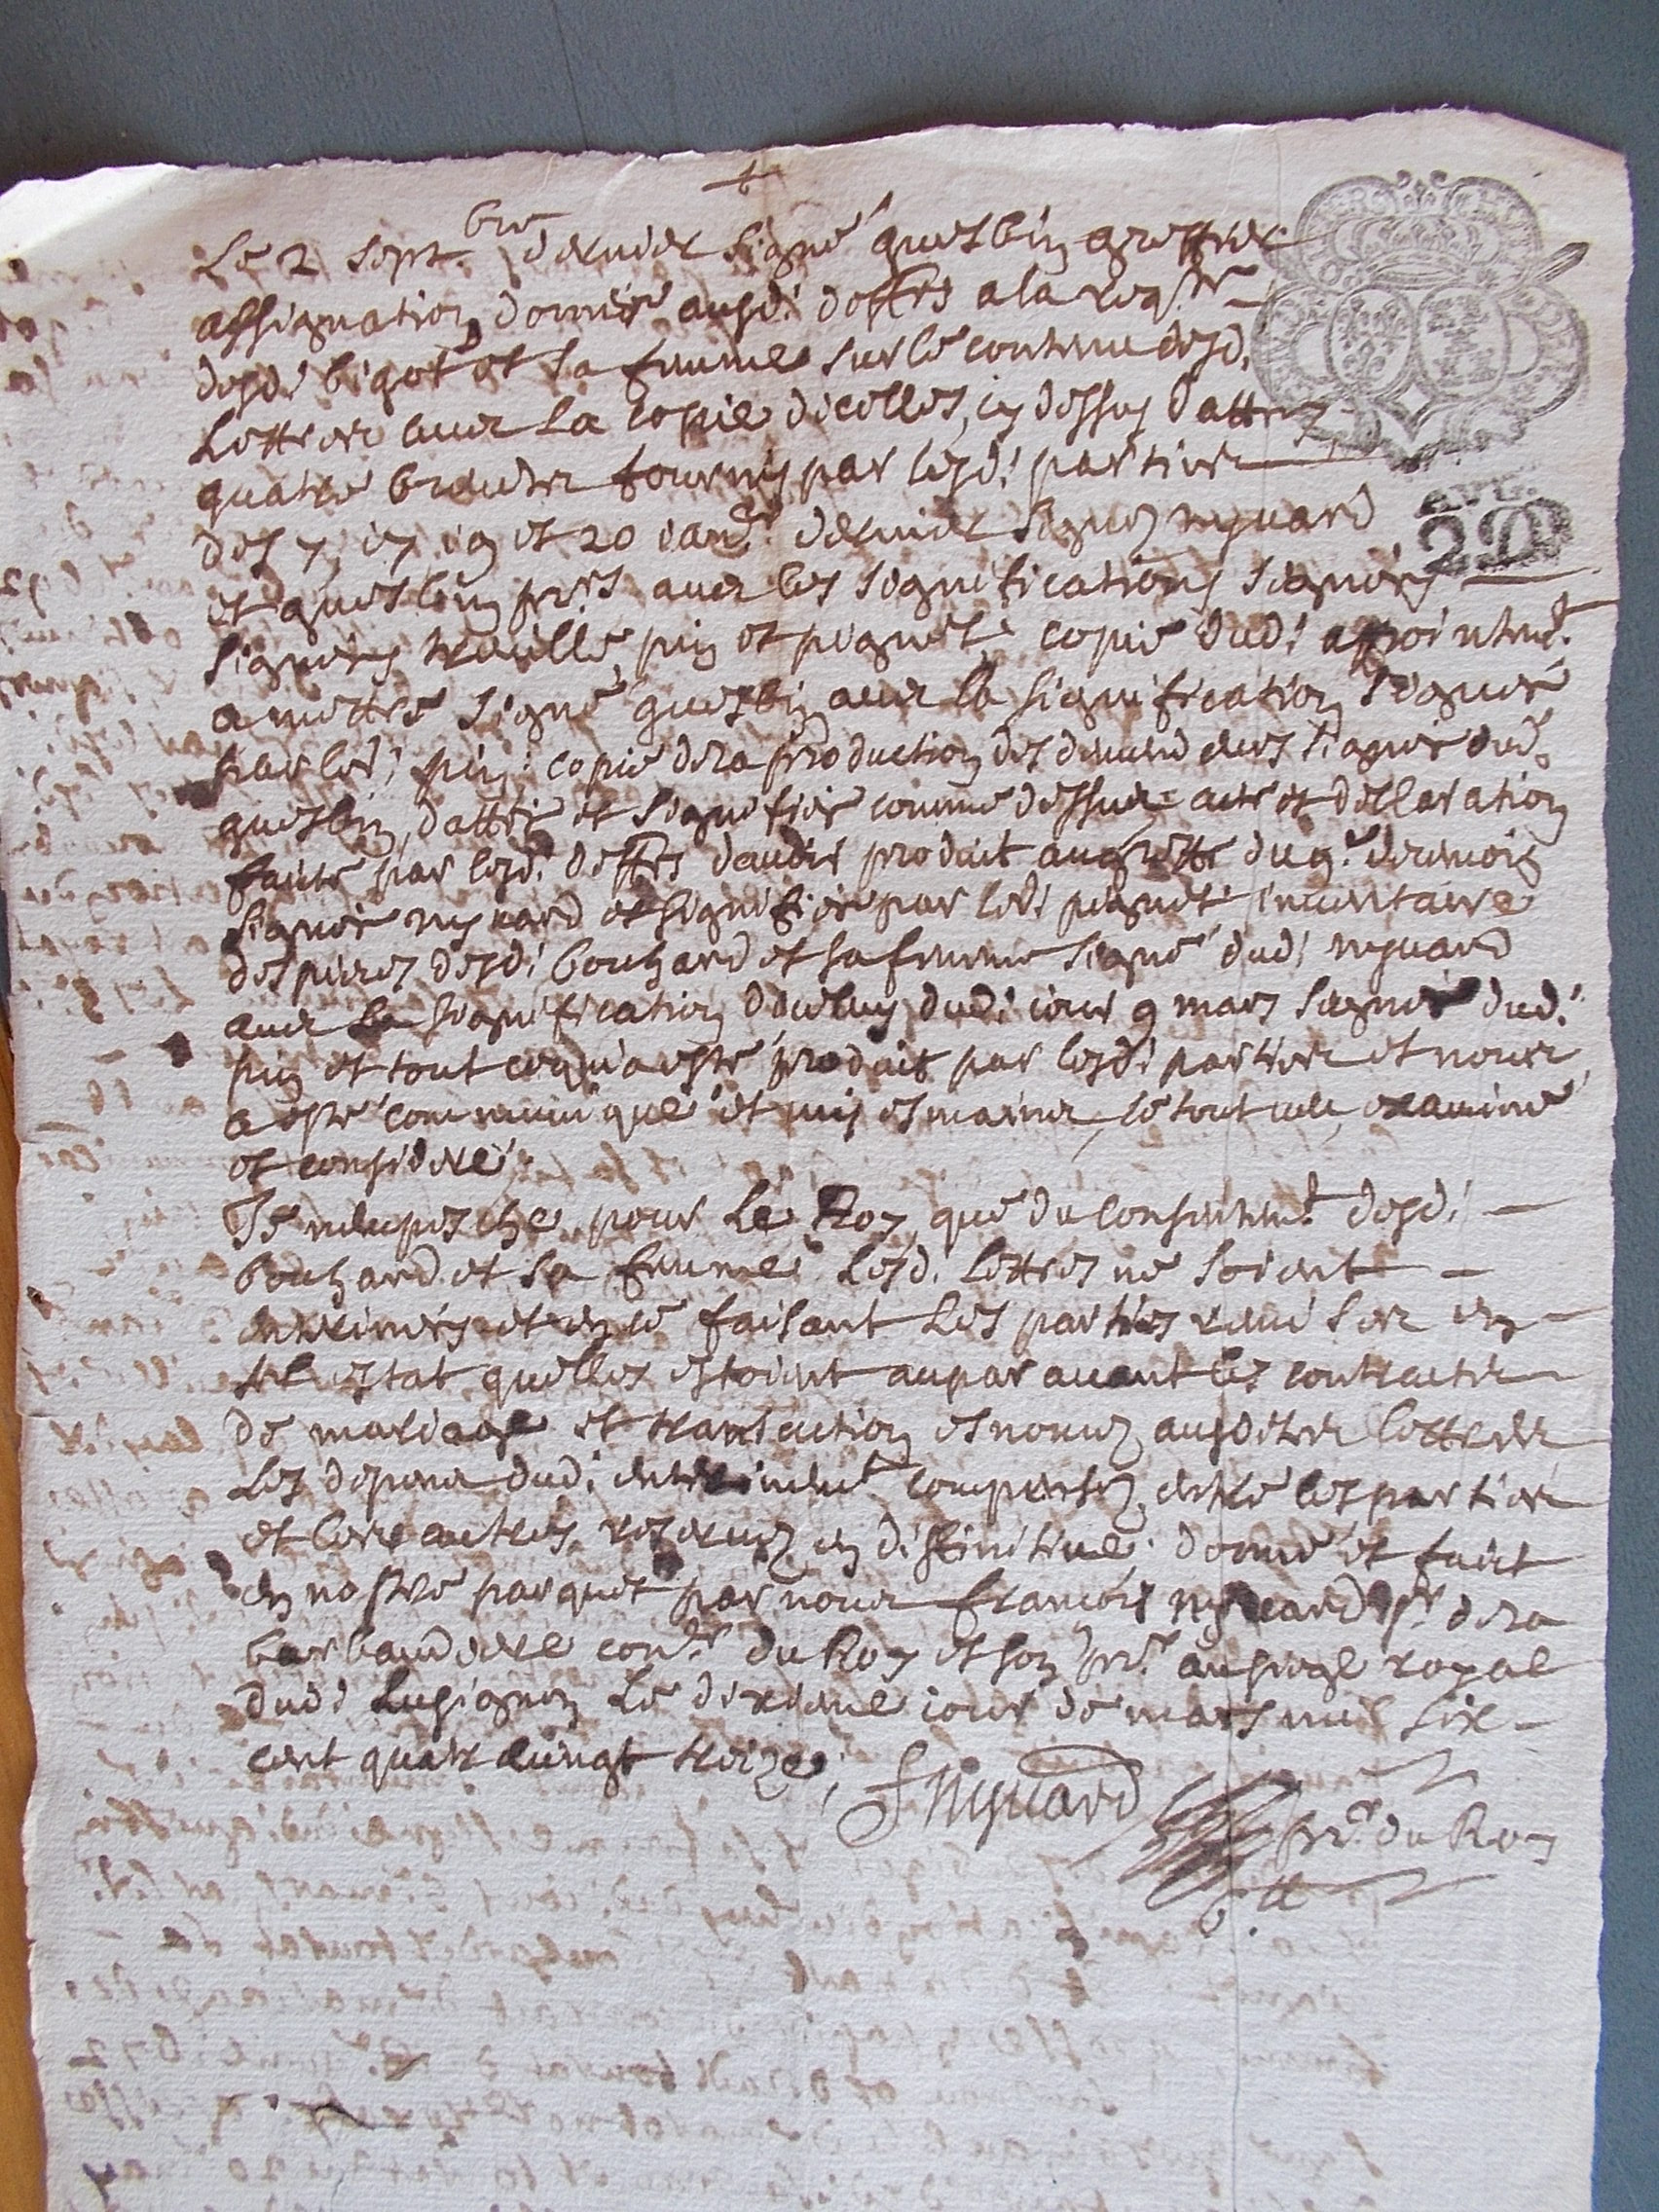 Le 2 septbre dernier signé quesbin greffier
assignation donnée ausd: deffrs a la reqte
desd: bigot et sa femme sur le contenu desd.
Lettres avec la copie dicelles, cy dessus dattez
quatre brevetz fournis par lesd: parties
des 7, 17, 19 et 20 janer dernier signez nyvard
et quesbin prrs avec les significations signées
signées treuille, pin et pignet; copie dud: appointemt
a mettre signé quesbin avec la signification signée
par led: pin; copie de la production des demandeurs signée dud.
quesbin, dattée et signifiée comme dessus acte et desclaration
faite par lesd: deffrs d'avoir produit au greffe du 9e du mois
signée nyvard et signifiée par led: pignet: inventaire
des pieces desd: bouchard et sa femme signé dud: nyvard
avec la signification diceluy dud: jour 9 mars signée dud:
pin et tout ce qui a esté produit par lesd: parties et nous
a esté communiqué et mis es mains, le tout veu, examiné
et consideré:
Je n'empesche pour Le Roy que du consentemt desd:
bouchard et sa femme Lesd. Lettres ne soient
entherinées et en ce faisant Les parties remises en
tel estat quelles estoient auparavant les contractz
de mariage et transaction esnoncez ausdites lettres
Les despens dud: entherinemt compensez, entre les parties
et les autres reservez en diffinitive. donné et faict
en nostre parquet par nous francois nyvard sr de la
barbaudiere coner du Roy et son prr au siege royal
dud: Lusignan Le dixieme jour de mars mil six
cent quatre vingt treize;
F Nyvard prr du Roy
AVG.
2D